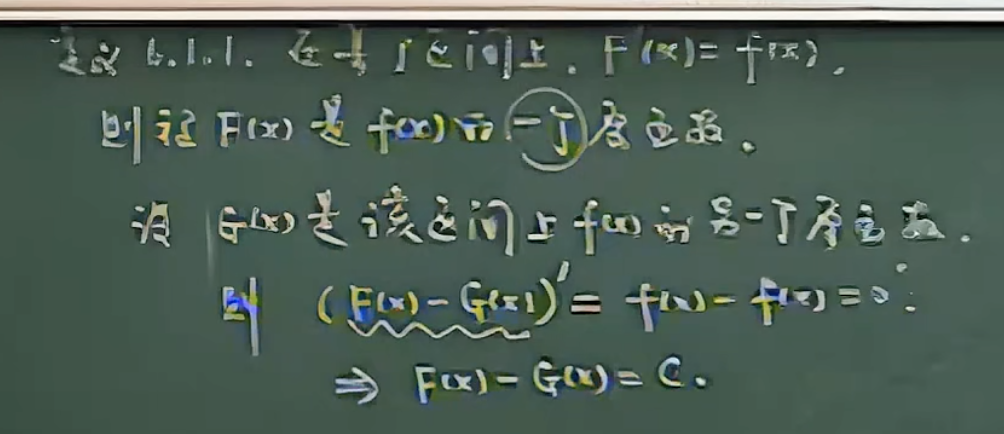 定义 6.1.1. 在某个区间上. F'(x) = f(x).
则记 F(x) 是 f(x) 的一个原函数.
设 G(x) 是该区间上 f(x) 的另一个原函数.
则 (F(x) - G(x))' = f(x) - f(x) = 0.
⇒ F(x) - G(x) = C.